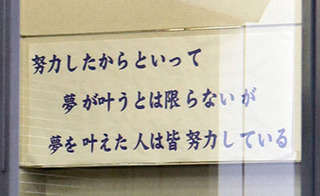 努力したからといって
夢が叶うとは限らないが
夢を叶えた人は皆努力している